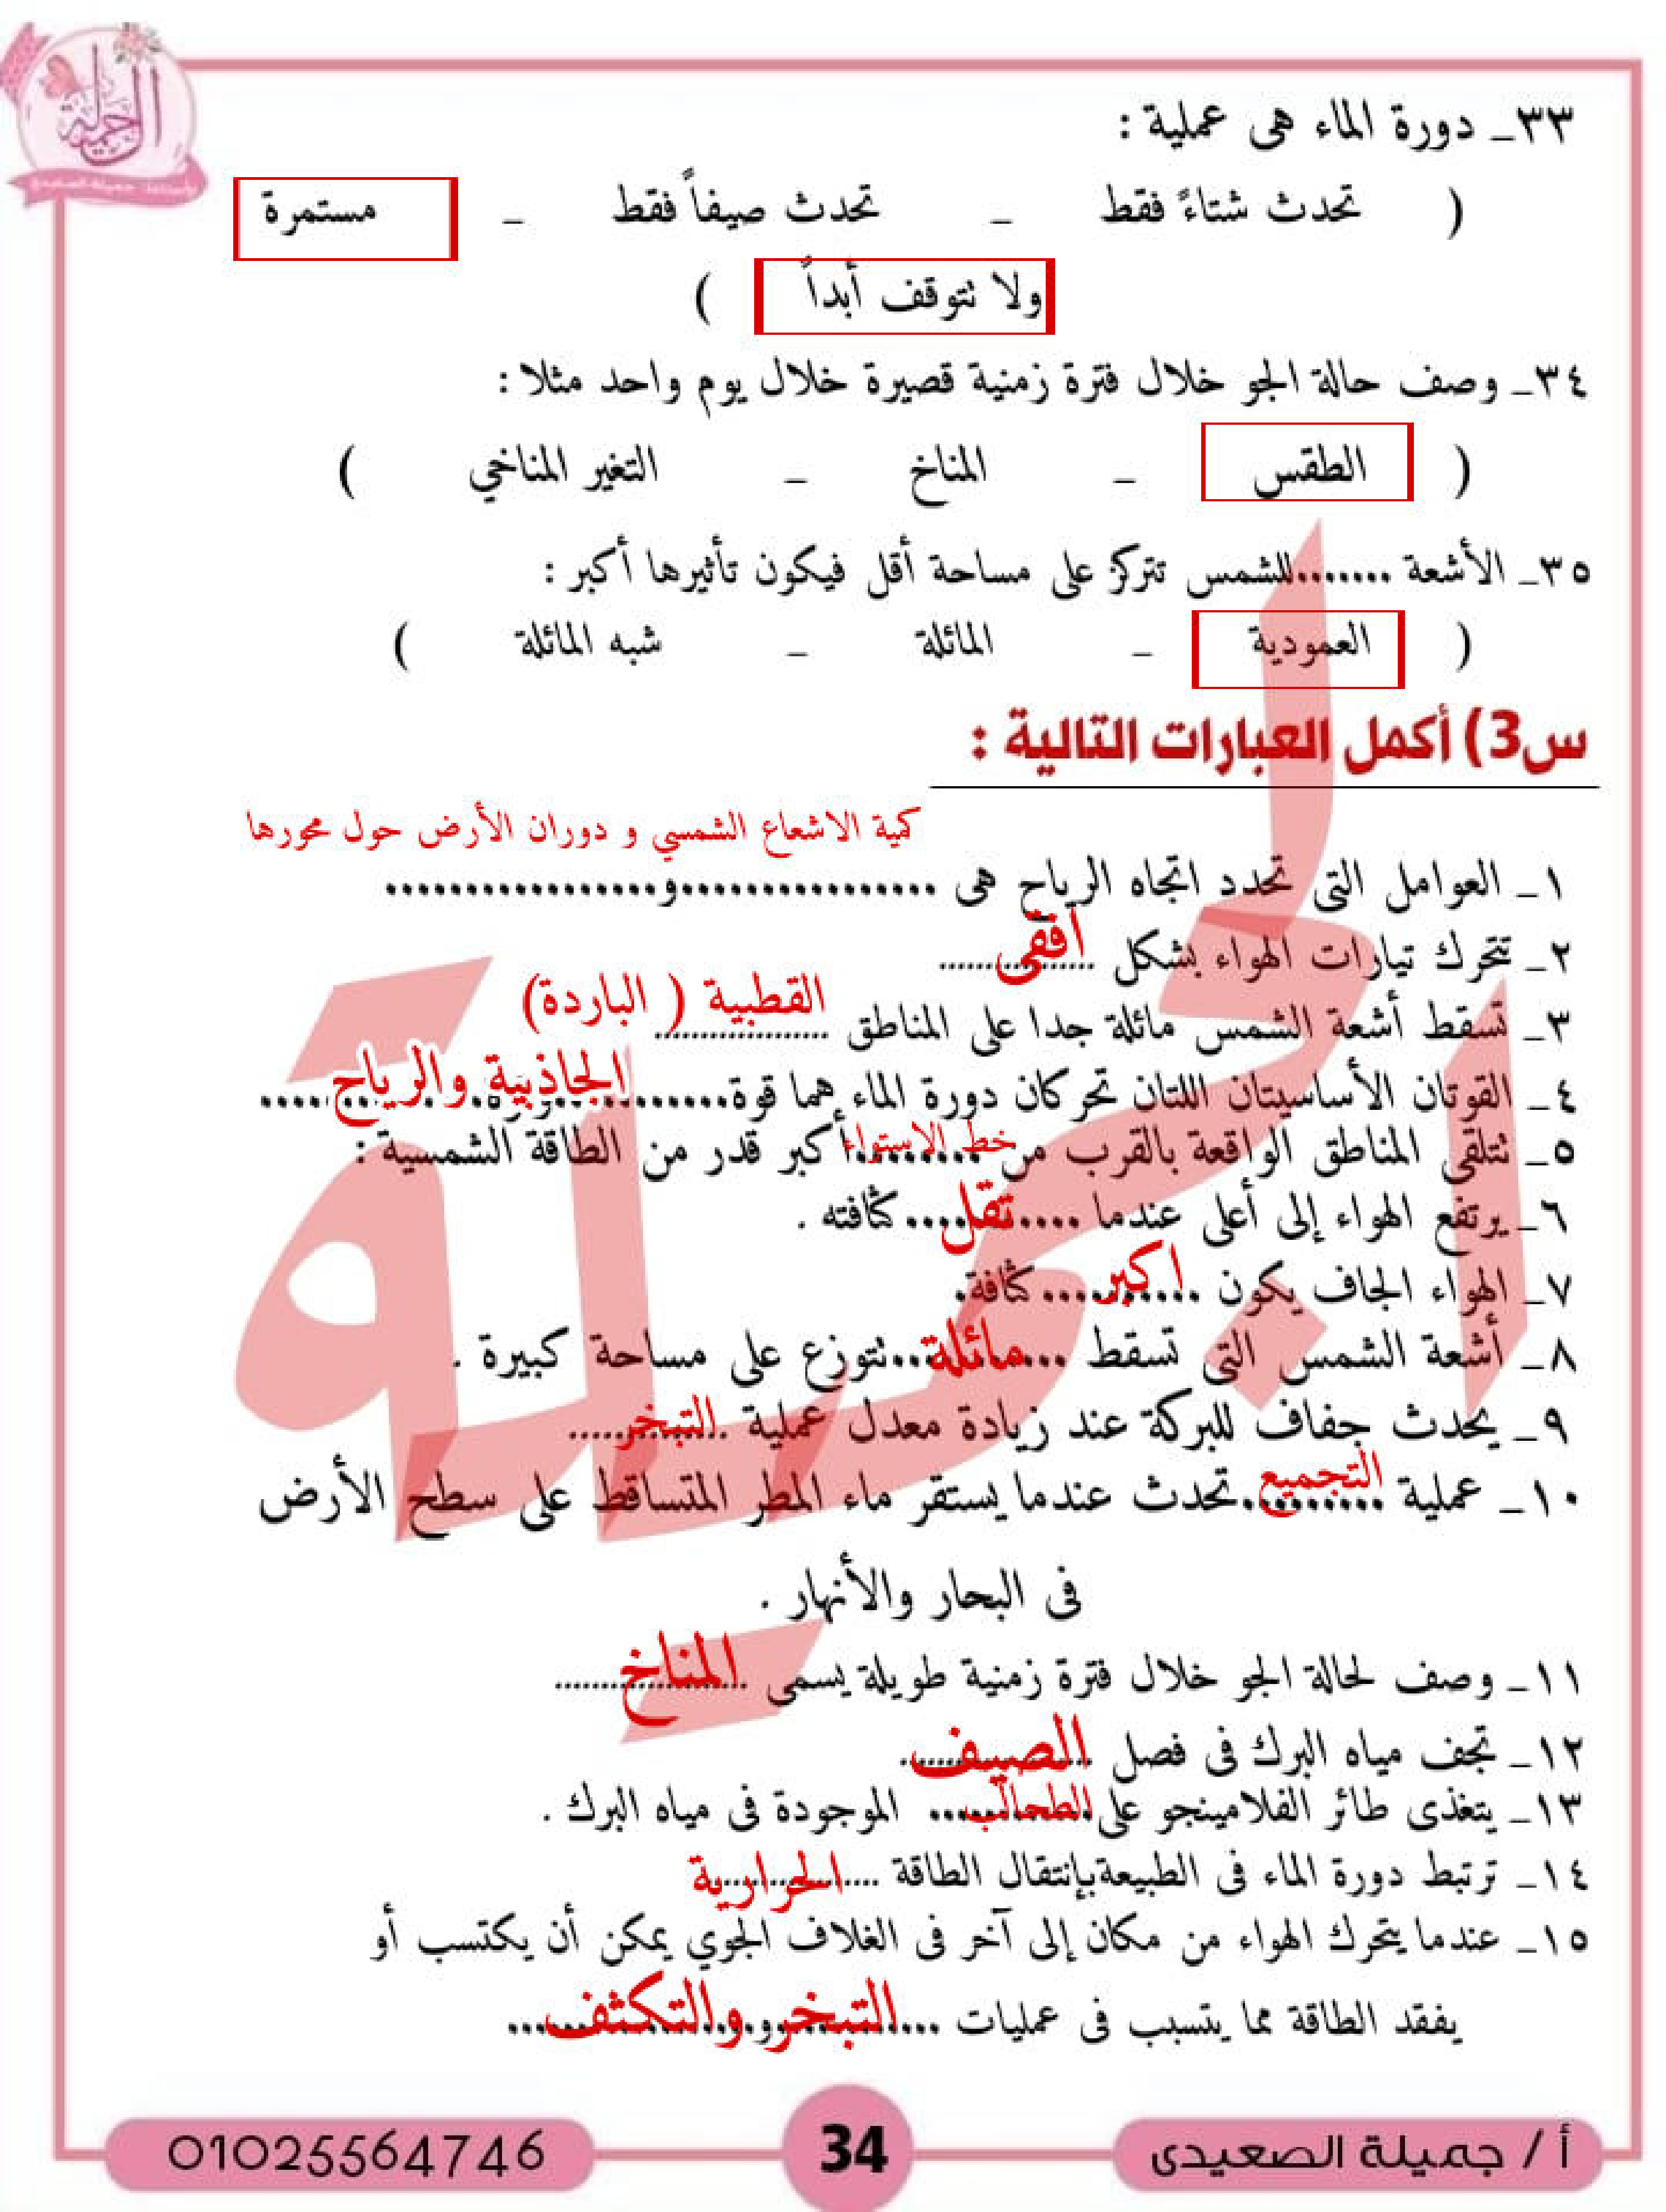 الجميلة
أ/ جميلة الصعيدى
٣٣ـ دورة الماء هى عملية :
( تحدث شتاءً فقط ـ تحدث صيفاً فقط ـ مستمرة
ولا تتوقف أبداً )
٣٤ـ وصف حالة الجو خلال فترة زمنية قصيرة خلال يوم واحد مثلا :
( الطقس ـ المناخ ـ التغير المناخي )
٣٥ـ الأشعة .......للشمس تتركز على مساحة أقل فيكون تأثيرها أكبر :
( العمودية ـ المائلة ـ شبه المائلة )
س3) أكمل العبارات التالية :
كمية الاشعاع الشمسي و دوران الأرض حول محورها
١ـ العوامل التى تحدد اتجاه الرياح هى ................و.................
٢ـ تتحرك تيارات الهواء بشكل أفقى
٣ـ تسقط أشعة الشمس مائلة جدا على المناطق القطبية ( الباردة)
٤ـ القوتان الأساسيتان اللتان تحركان دورة الماء هما قوة الجاذبية والرياح
٥ـ تتلقى المناطق الواقعة بالقرب من خط الاستواء أكبر قدر من الطاقة الشمسية :
٦ـ يرتفع الهواء إلى أعلى عندما تقل كثافته .
٧ـ الهواء الجاف يكون اكبر كثافة.
٨ـ أشعة الشمس التى تسقط مائلة تتوزع على مساحة كبيرة .
٩ـ يحدث جفاف للبركة عند زيادة معدل عملية التبخر
١٠ـ عملية التجميع تحدث عندما يستقر ماء المطر المتساقط على سطح الأرض
فى البحار والأنهار .
١١ـ وصف لحالة الجو خلال فترة زمنية طويلة يسمى المناخ
١٢ـ تجف مياه البرك فى فصل الصيف
١٣ـ يتغذى طائر الفلامينجو على الطحالب الموجودة فى مياه البرك .
١٤ـ ترتبط دورة الماء فى الطبيعة بإنتقال الطاقة الحرارية
١٥ـ عندما يتحرك الهواء من مكان إلى آخر فى الغلاف الجوي يمكن أن يكتسب أو
يفقد الطاقة مما يتسبب فى عمليات التبخر والتكثف
أ / جميلة الصعيدى
34
01025564746